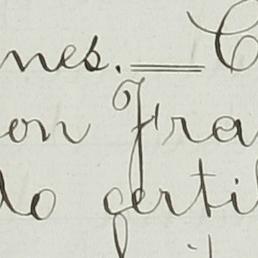 nes. = C
on Fra
do certi